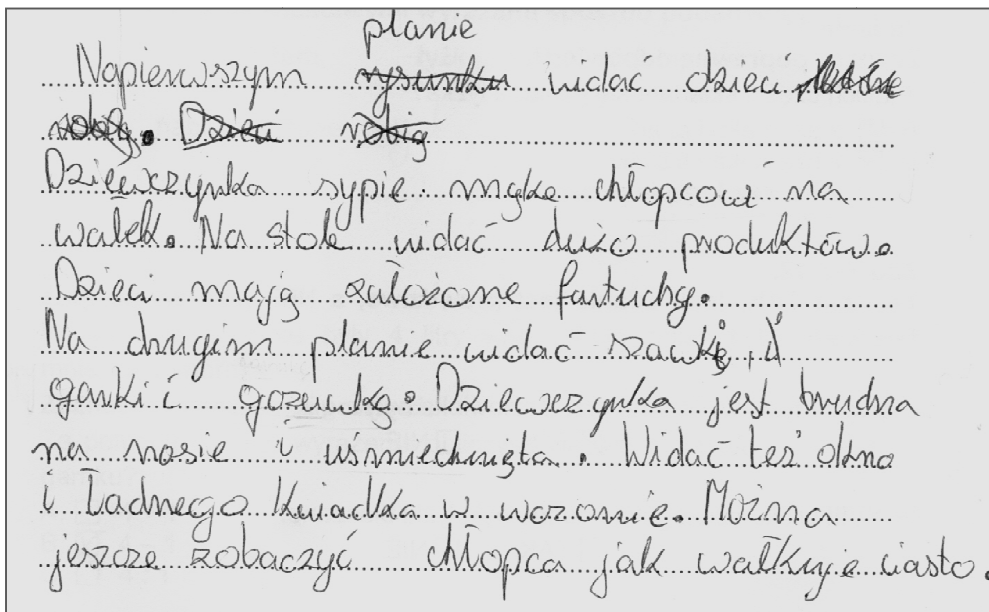 planie
Napierwszym rysunku widać dzieci które
robią. Dzieci robią
Dziewczynka sypie mąke chłopcowi na
wałek. Na stole widać dużo produktów.
Dzieci mają założone fartuchy.
Na drugim planie widać szawki, i
garki i gozewkę. Dziewczynka jest brudna
na nosie i uśmiechnięta. Widać też okno
i Ładnego kwiadka w wazonie. Można
jeszcze zobaczyć chłopca jak wałkuje ciasto.